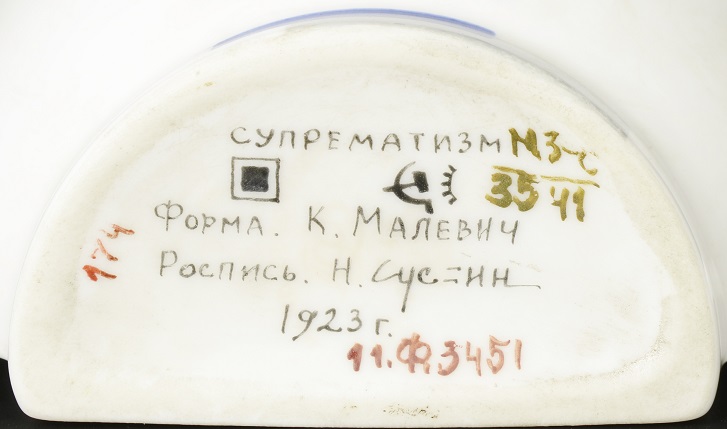 СУПРЕМАТИЗМ
МЗ-с
35 41
ФОРМА. К. МАЛЕВИЧ
Роспись. Н. Суетин
1923 г.
174
11.Ф.3451